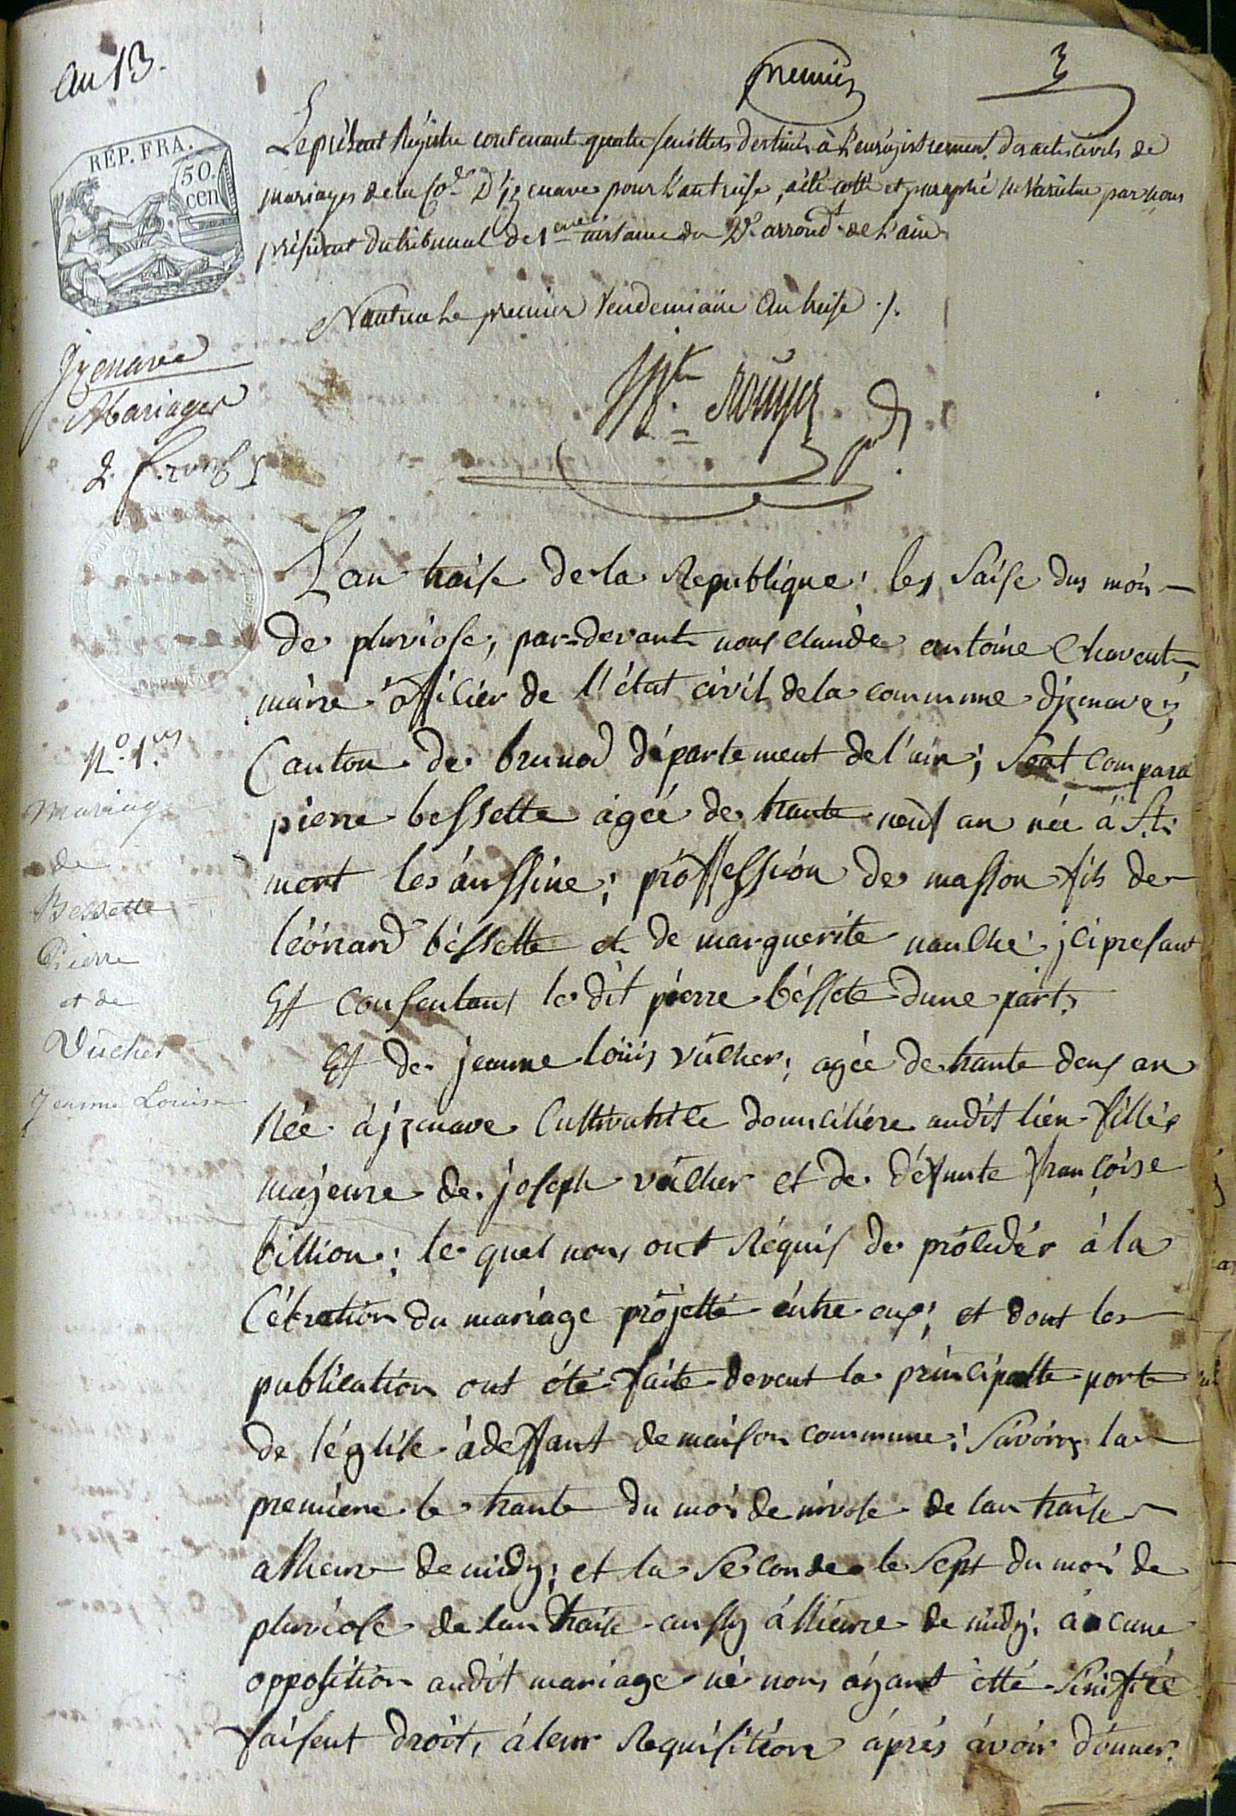 an 13.
premier
3
RÉP. FRA.
50.
cen
Le présent Régistre contenant quatre feuillets destinés à l'enrégistrement des actes civils de
mariages de la Co.ne D'izenave pour l'an treise, a été cotté et paraphé par nous
président du tribunal de 1ere instance du 2e arrond.t de l'ain
Nantua le premier Vendemiaire an treise ./.
Izenave
Mariages
L'an traise de la Republique; les saise dus mois
de pluviose, par-devant nous claude antoine Chavent
maire officier de l'état civil de la commune dizenave;
Canton de brenod département de l'ain; sont compara
pierre bessette agée de trante neuf an née à St.
ment les aussine; proffession de masson fils de
léonard bessette et de marguerite naulhe jci presant
Et consentant le dit pierre bessete dune part.
Et de jeanne louis vücher; agée de trante deux an
Née à jzenave Cultivatrice domiciliére audit lieu fillie
majeure de joseph vücher et de défunte françoise
billion; le quel nous ont Réquis de procedér à la
Célration du mariage projetté entre eux; et dont les
publication ont été faite devent la principalle porte
de léglise à deffaut de maison commune; savoir la
premiere le trante du mois de nivose de lan traise
a lheure de midy; et la seconde le sept du mois de
pluviose de lan traise aussy à lheure de midy; aucune
opposition audit mariage ne nous ayant été sinifiée
faisent droit, à leur Requisition áprés ávoir donner.
N.o 1.er
Mariage
de
Bessette
Pierre
et de
Vücher
Jeanne Louise